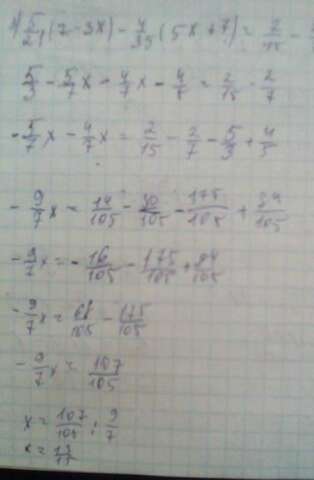 5/21(7-3x) - 4/35(5x+7) = 2/15 -
5/3 - 5/7x - 4/7x - 4/5 = 2/15 - 2/7
-5/7x - 4/7x = 2/15 - 2/7 - 5/3 + 4/5
-9/7x = 14/105 - 30/105 - 175/105 + 84/105
-9/7x = -16/105 - 175/105 + 84/105
-9/7x = 68/105 - 175/105
-9/7x = 107/105
x = 107/105 : 9/7
x =